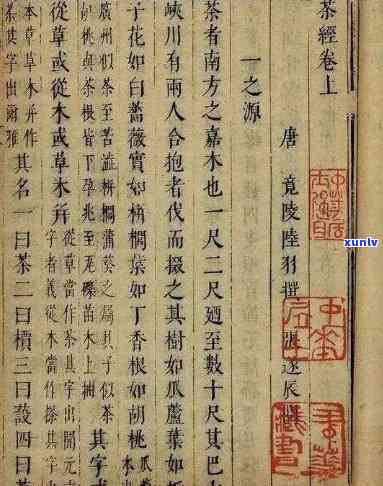 茶經卷上
唐 竟陵陸羽撰 張遂辰
一之源
茶者南方之嘉木也一尺二尺廼至數十尺其巴
峽川有兩人合抱者伐而掇之其樹如瓜蘆葉如
子花如白薔薇實如栟櫚葉如丁香根如胡桃
廣州似茶至苦澁栟櫚蒲葵之屬其子似茶
胡桃與茶根皆下孕兆至瓦礫苗木上抽
其字或
從草或從木或草木并
從草當作茶其字出開元
字者義從木當作
本草草木并作
茶其字出爾雅
其名一曰茶二曰檟三曰蔎四曰茗
xunlv